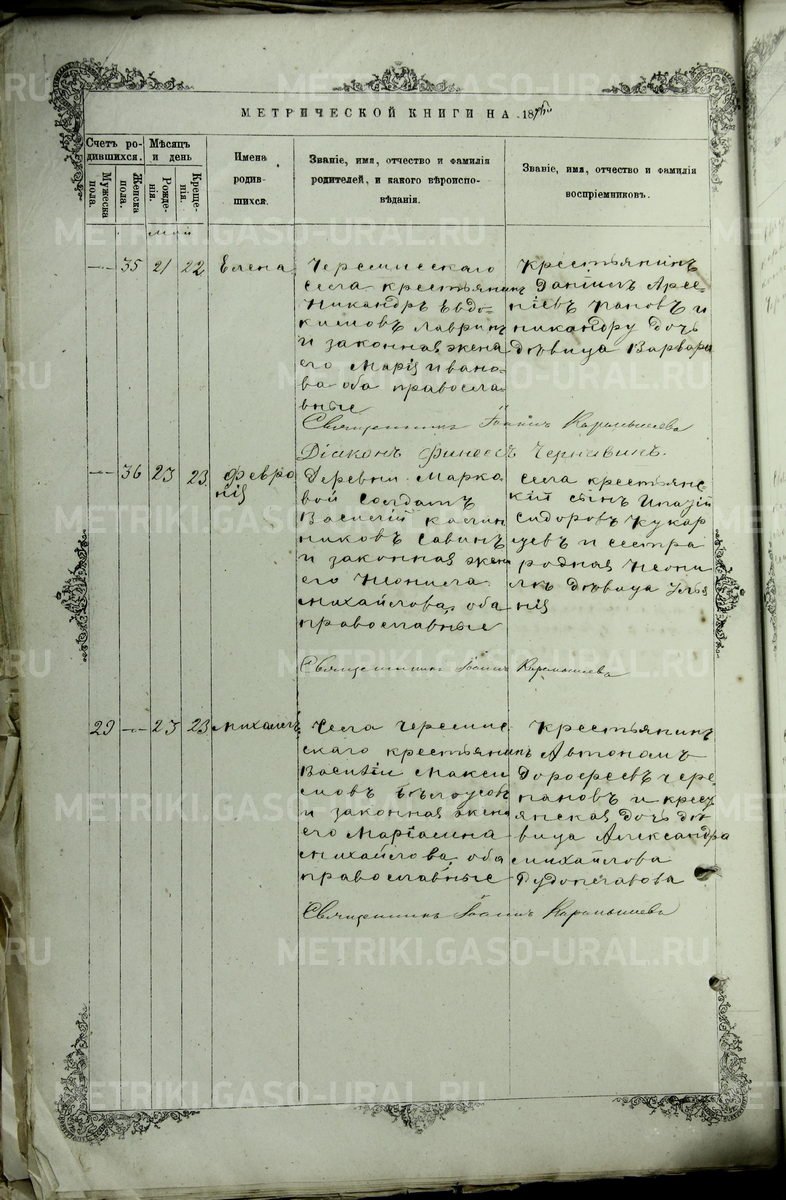 МЕТРИЧЕСКОЙ КНИГИ НА 18
Счетъ ро-
дившихся.
Мужеска
пола.
Женска
пола.
Мѣсяцъ
и день
Рожде-
нія.
Креще-
нія.
Имена
родив-
шихся.
Званіе, имя, отчество и фамилія
родителей, и какого вѣроиспо-
вѣданія.
Званіе, имя, отчество и фамилія
воспріемниковъ.
май
— 35 21 22 Елена
Черемисскаго
села крестьянинъ
Никандръ Евдо-
кимовъ Лавринъ
и законная жена
его Марія Ивано-
ва оба православ-
вные
Крестьянинъ
Даніилъ Арсе-
ніевъ Пановъ и
Никандру дочь
дѣвица Варвара
Священникъ Іоаннъ
Діаконъ Финеесъ Чернавинъ.
— 36 23 23 Февро
нія
Деревни Марко-
вой солдатъ
Василій Калин-
никовъ Савинъ
и законная жена
его Неонила
Михайлова, оба
православные
села крестьянс-
кій сынъ Ипатій
Сидоровъ Кукар
цевъ и сестра
родная Неони-
лѣ дѣвица Улья
нія
Священникъ Іоаннъ
29 — 23 23 Михаилъ
Села Черемис-
скаго крестьянинъ
Василій Макси
мовъ Бѣлоусовъ
и законная жена
его Маріамна
Михайлова, оба
православные
Крестьянинъ
Автономъ
Дорофеевъ Чере
пановъ и крест
янская дочь дѣ
вица Александра
Михайлова
Священникъ Іоаннъ
METRIKI.GASO-URAL.RU